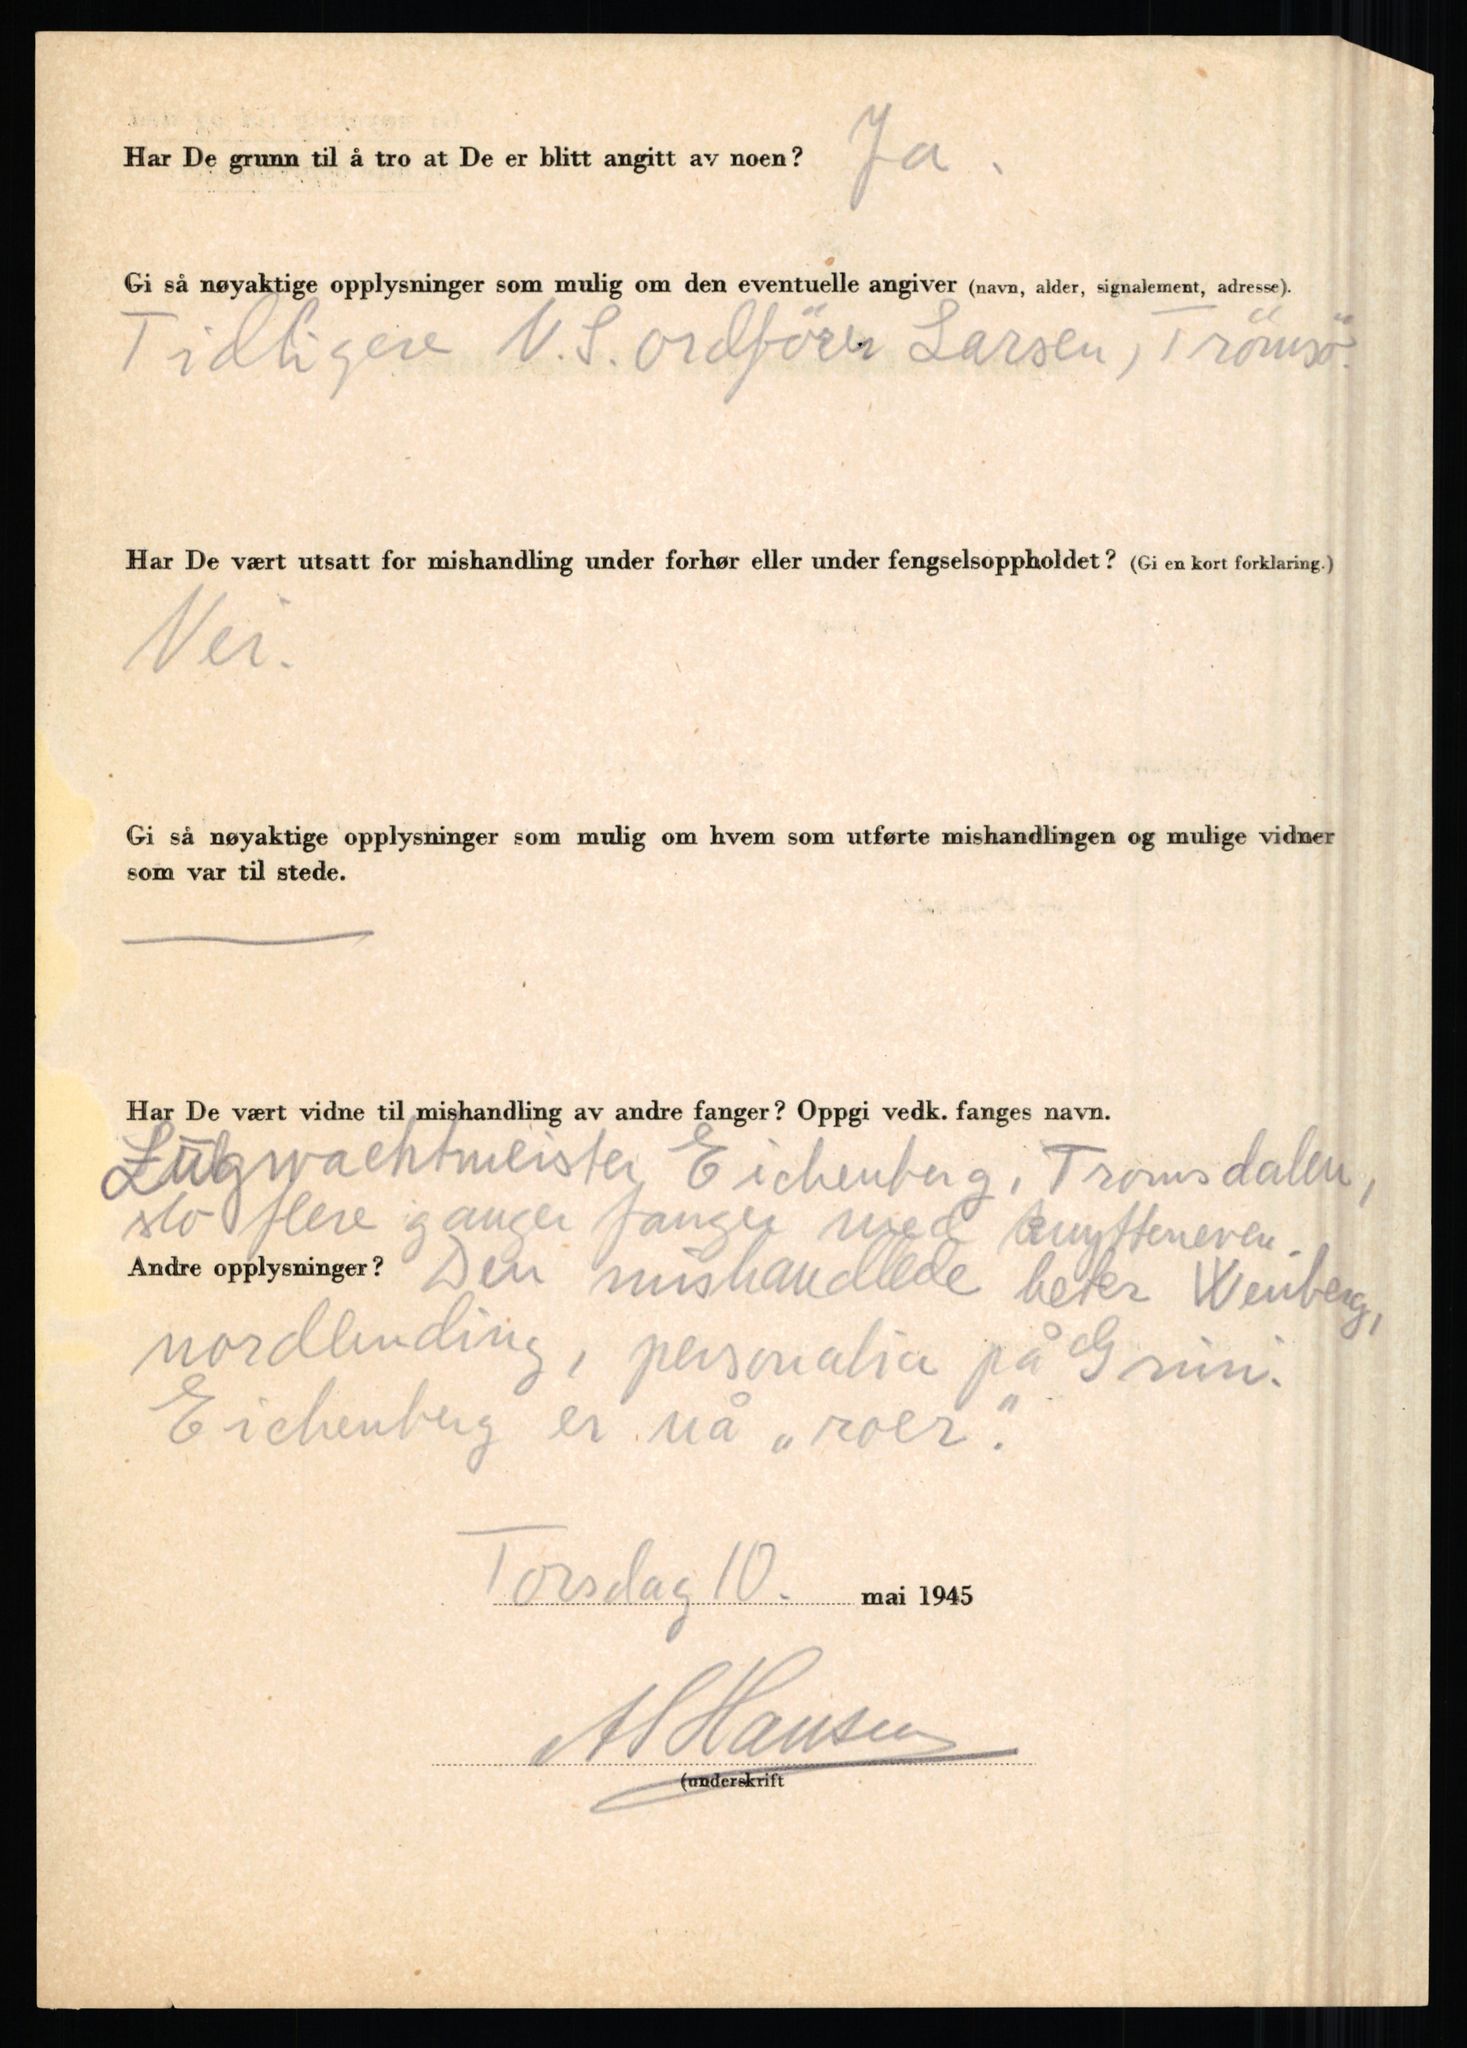 Har De grunn til å tro at De er blitt angitt av noen? Ja.
Gi så nøyaktige opplysninger som mulig om den eventuelle angiver (navn, alder, signalement, adresse).
Tidligere N.S. ordförer Larsen, Trömsö.
Har De vært utsatt for mishandling under forhør eller under fengselsoppholdet? (Gi en kort forklaring.)
Nei.
Gi så nøyaktige opplysninger som mulig om hvem som utførte mishandlingen og mulige vidner
som var til stede.
Har De vært vidne til mishandling av andre fanger? Oppgi vedk. fanges navn.
Zugwachtmeister Eichenberg, Tromsdalen,
slo flere ganger fanger med knyttneven.
Andre opplysninger? Den mishandlede heter Weiberg,
nordlending, personalia på Grini.
Eichenberg er nå „roer".
Torsdag 10. mai 1945
A S Hansen
(underskrift